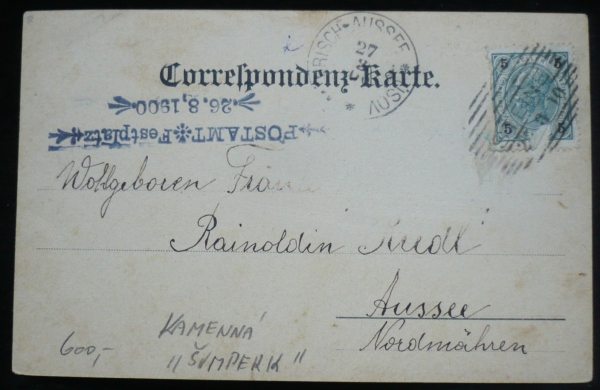 RISCH-AUSSEE
27
Correspondenz-Karte.
5 5
5 5
POSTAMT Festplatz
26.8.1900
Wohlgeboren Frau
Rainoldin Riedl
Aussee
Nordmähren
KAMENNÁ
"ŠUMPERK"
600,-